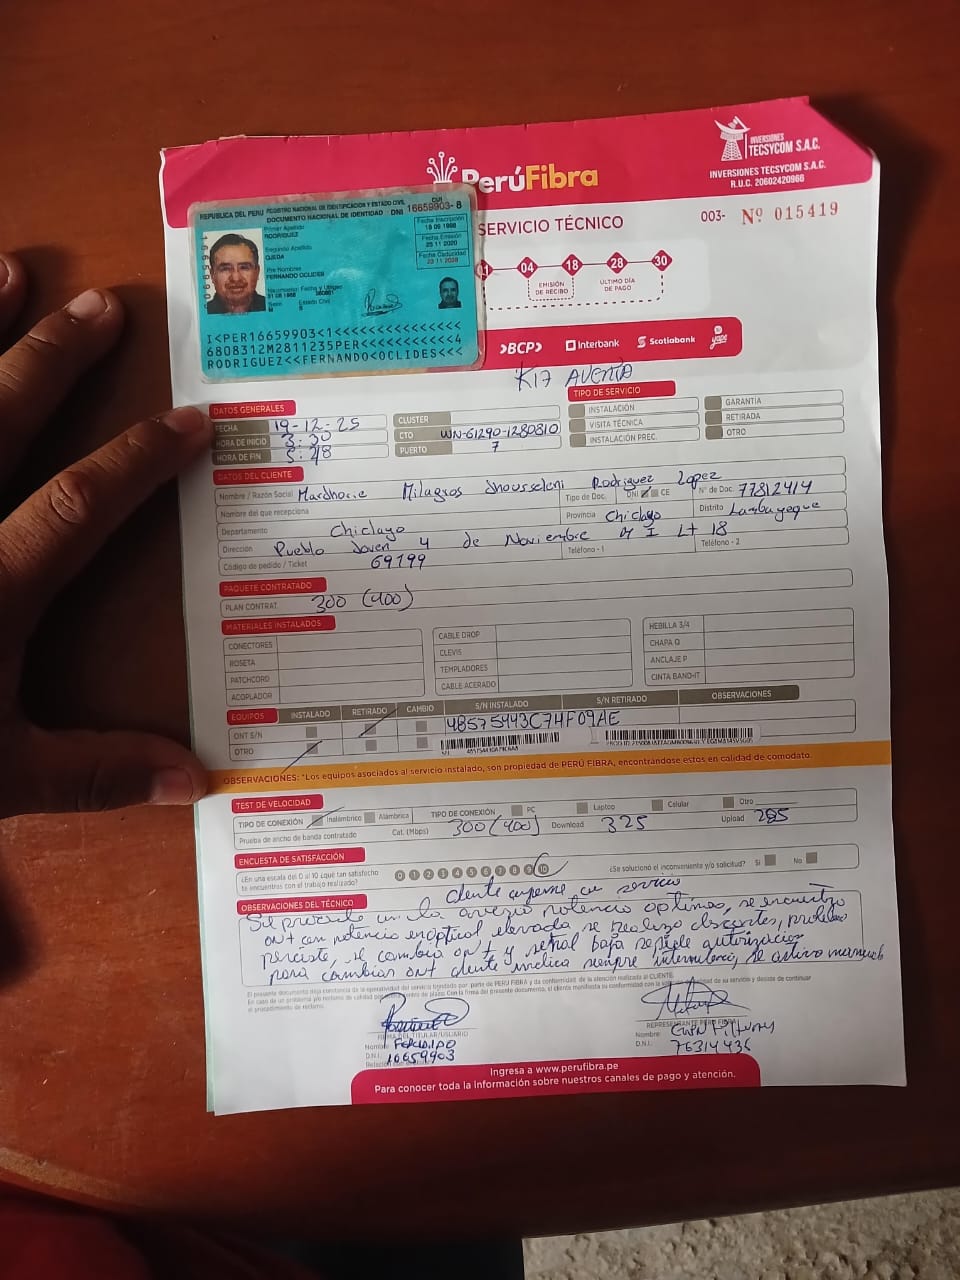 INVERSIONES
TECSYCOM S.A.C.
INVERSIONES TECSYCOM S.A.C.
R.U.C. 20602420966
PerúFibra
003- Nº 015419
SERVICIO TÉCNICO
REPUBLICA DEL PERU REGISTRO NACIONAL DE IDENTIFICACION Y ESTADO CIVIL
DOCUMENTO NACIONAL DE IDENTIDAD DNI 16659903-8
CUI
Primer Apellido
RODRIGUEZ
Segundo Apellido
OJEDA
Pre Nombres
FERNANDO OCLIDES
Fecha Inscripción
Fecha Emisión
23 11 2020
Fecha Caducidad
23 11 2028
I<PER16659903<1<<<<<<<<<<<<<<<
6808312M2811235PER<<<<<<<<<<<4
RODRIGUEZ<<FERNANDO<OCLIDES<<<
01 04 18 28 30
EMISIÓN DE RECIBO
ÚLTIMO DÍA DE PAGO
BCP Interbank Scotiabank yape
K17 AVERIA
DATOS GENERALES
FECHA 19-12-25
HORA DE INICIO 3:30
HORA DE FIN 5:48
CLUSTER
CTO WN-61290-1280810
PUERTO 7
TIPO DE SERVICIO
INSTALACIÓN
VISITA TÉCNICA
INSTALACIÓN PREC.
GARANTIA
RETIRADA
OTRO
DATOS DEL CLIENTE
Nombre / Razón Social Mardhorie Milagros Jhousseleni Rodriguez Lopez
Tipo de Doc. DNI CE Nº de Doc. 77812414
Nombre del que recepciona
Departamento Chiclayo Provincia Chiclayo Distrito Lambayeque
Dirección Pueblo Joven 4 de Noviembre M I Lt 18
Teléfono - 1 Teléfono - 2
Código de pedido / Ticket 69199
PAQUETE CONTRATADO
PLAN CONTRAT. 300 (400)
MATERIALES INSTALADOS
CONECTORES
ROSETA
PATCHCORD
ACOPLADOR
CABLE DROP
CLEVIS
TEMPLADORES
CABLE ACERADO
HEBILLA 3/4
CHAPA Q
ANCLAJE P
CINTA BAND-IT
EQUIPOS INSTALADO RETIRADO CAMBIO S/N INSTALADO S/N RETIRADO OBSERVACIONES
ONT S/N 48575443C74F09AE
OTRO
OBSERVACIONES: "Los equipos asociados al servicio instalado, son propiedad de PERÚ FIBRA, encontrándose estos en calidad de comodato.
TEST DE VELOCIDAD
TIPO DE CONEXIÓN Inalámbrico Alámbrica TIPO DE CONEXIÓN PC Laptop Celular Otro
Prueba de ancho de banda contratado Cat. (Mbps) 300 (400) Download 325 Upload 285
ENCUESTA DE SATISFACCIÓN
¿En una escala del 0 al 10 ¿qué tan satisfecho te encuentras con el trabajo realizado? 0 1 2 3 4 5 6 7 8 9 10
¿Se solucionó el inconveniente y/o solicitud? Si No
OBSERVACIONES DEL TÉCNICO
Cliente conforme con servicio
Se procede con la averia potencia optimas, se encuentra
ont con potencia en optical elevada, se realizo descartes, problema
persiste, se cambia ont y señal baja se pide autorizacion
para cambiar ont cliente indica siempre intermitencia, se activo
El presente documento deja constancia de la operatividad del servicio brindado por parte de PERÚ FIBRA y da conformidad de la atención realizada al CLIENTE.
FIRMA DEL TITULAR/USUARIO
Nombre:
D.N.I. 16659903
REPRESENTANTE PERÚ FIBRA
Nombre:
D.N.I.: 76314436
Ingresa a www.perufibra.pe
Para conocer toda la información sobre nuestros canales de pago y atención.